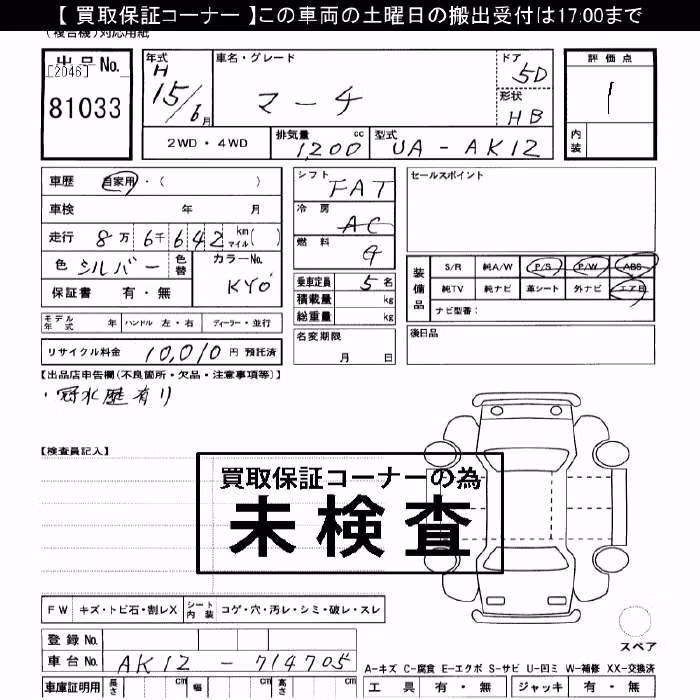 【 買取保証コーナー 】この車両の土曜日の搬出受付は17:00まで
(複合機)対応用紙
出品No.
[2046]
81033
年式
H
15/6月
車名・グレード
マーチ
ドア
5D
形状
HB
評価点
1
内装
2WD・4WD
排気量
1,200 cc
型式
UA-AK12
車歴 自家用・( )
車検 年 月
走行 8万6千642 km マイル( )
色 シルバー
色替
カラーNo.
KYO
保証書 有・無
シフト
FAT
冷房
AC
燃料
乗車定員 5名
積載量 kg
総重量 kg
セールスポイント
装備品
S/R 純A/W P/S P/W ABS
純TV 純ナビ 革シート 外ナビ エアB
ナビ型番:
モデル年式 年 ハンドル 左・右 ディーラー・並行
リサイクル料金 10,010円 預託済
名変期限
月 日
後日品
【出品店申告欄(不良箇所・欠品・注意事項等)】
・冠水歴有り
【検査員記入】
買取保証コーナーの為
未検査
FW キズ・トビ石・割レX シート内装 コゲ・穴・汚レ・シミ・破レ・スレ
スペア
登録No.
車台No. AK12-714705
A-キズ C-腐食 E-エクボ S-サビ U-凹ミ W-補修 XX-交換済
車庫証明用 長さ cm 幅 cm 高さ cm
工具 有・無 ジャッキ 有・無